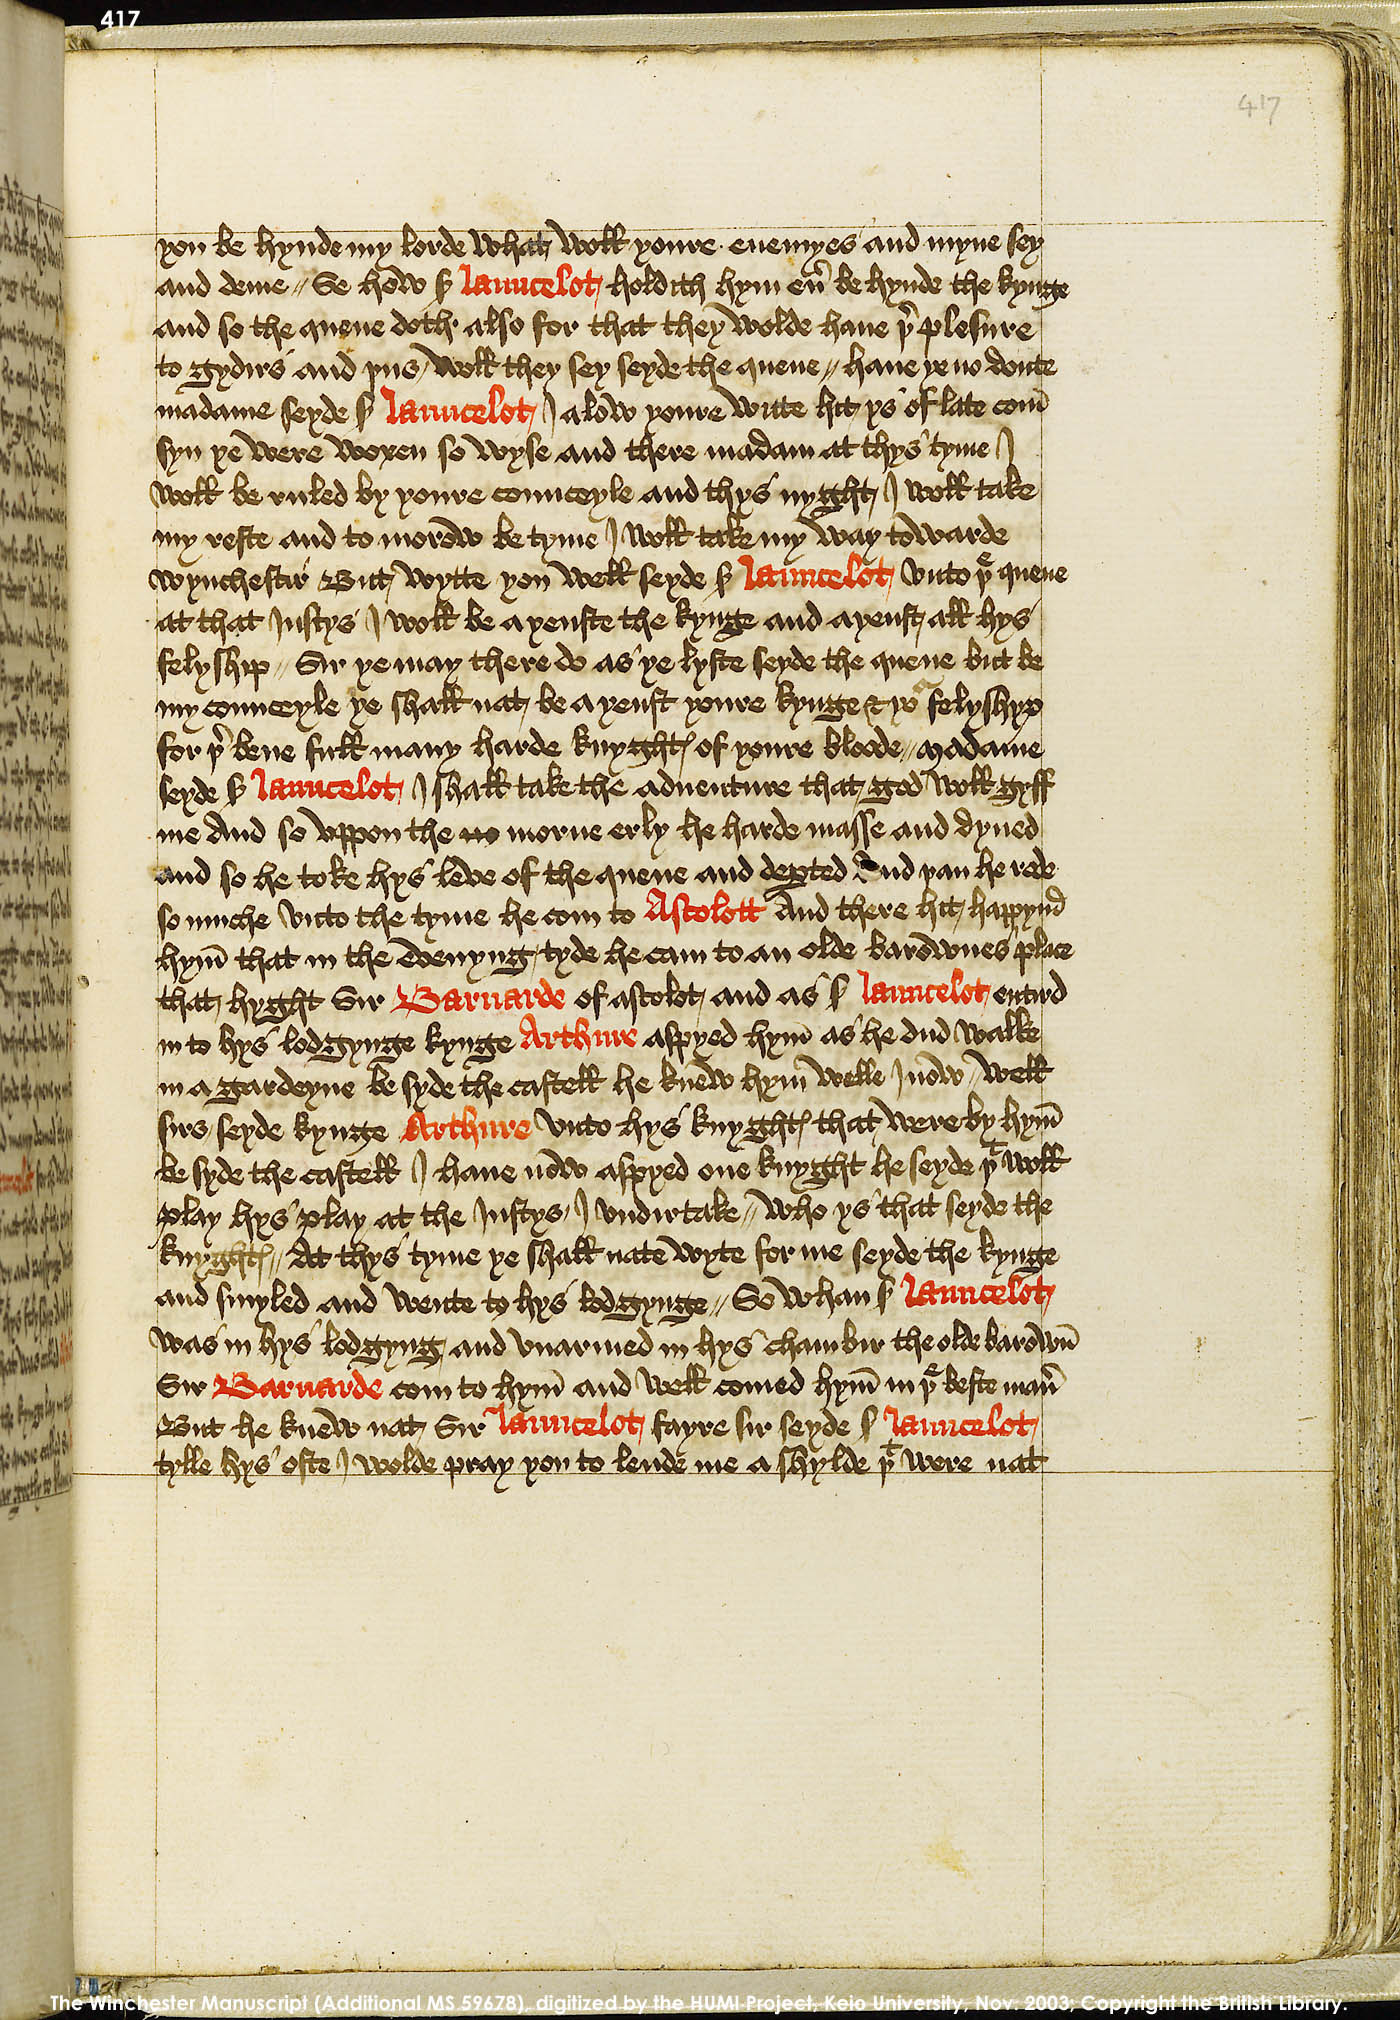 417
417
you be hynde my lorde what woll youre enemyes and myne sey
and deme // Se how sʳ Launcelot holdith hym eũ be hynde the kynge
and so the quene doth also for that they wolde haue þᵉ plesure
to gydirs and þus woll they sey seyde the quene // haue ye no doute
madame seyde sʳ Launcelot I alow youre witte hit ys of late com̄
syn ye were woxen so wyse and there madam at thys tyme I
woll be ruled by youre counceyle and thys nyght I woll take
my reste and to morow be tyme I woll take my way towarde
wynchestir But wytte you well seyde sʳ Launcelot vnto þᵉ quene
at that Justys I woll be ayenste the kynge and ayenst all hys
felyship // Sir ye may there do as ye lyste seyde the quene but be
my counceyle ye shall nat be ayenst youre kynge & yoʳ felyshyp
for þʳ bene full many harde knyghtꝭ of youre bloode // Madame
seyde sʳ Launcelot I shall take the aduenture that god woll gyff
me And so vppon the no morne erly he harde masse and dyned
and so he toke hys leve of the quene and deꝑted And þan he rode
so muche vnto the tyme he com to Astolott And there hit happynd
hym̄ that in the evenyng tyde he cam to an olde barownes place
that hyght Sir Barnarde of astolot and as sʳ Launcelot entird
in to hys lodgynge kynge Arthure aspyed hym̄ as he dud walke
in a gardeyne be syde the castell he knew hym̄ welle I now // Well
sirs seyde kynge Arthure vnto hys knyghtꝭ that were by hym̄
be syde the castell I haue now aspyed one knyght he seyde þᵗ woll
play hys play at the Justys I vndirtake // Who ys that seyde the
knyghtꝭ // At thys tyme ye shall nate wyte for me seyde the kynge
and smyled and wente to hys lodgynge // So whan sʳ Launcelot
was in hys lodgyng and vnarmed in hys chambir the olde barown̄
Sir Barnarde com to hym̄ and well comed hym̄ in þᵉ beste man̄
But he knew nat Sir Launcelot fayre sir seyde sʳ Launcelot
tylle hys oste I wolde pray you to lende me a shylde þᵗ were nat
The Winchester Manuscript (Additional MS 59678), digitized by the HUMI Project, Keio University, Nov. 2003; Copyright the British Library.